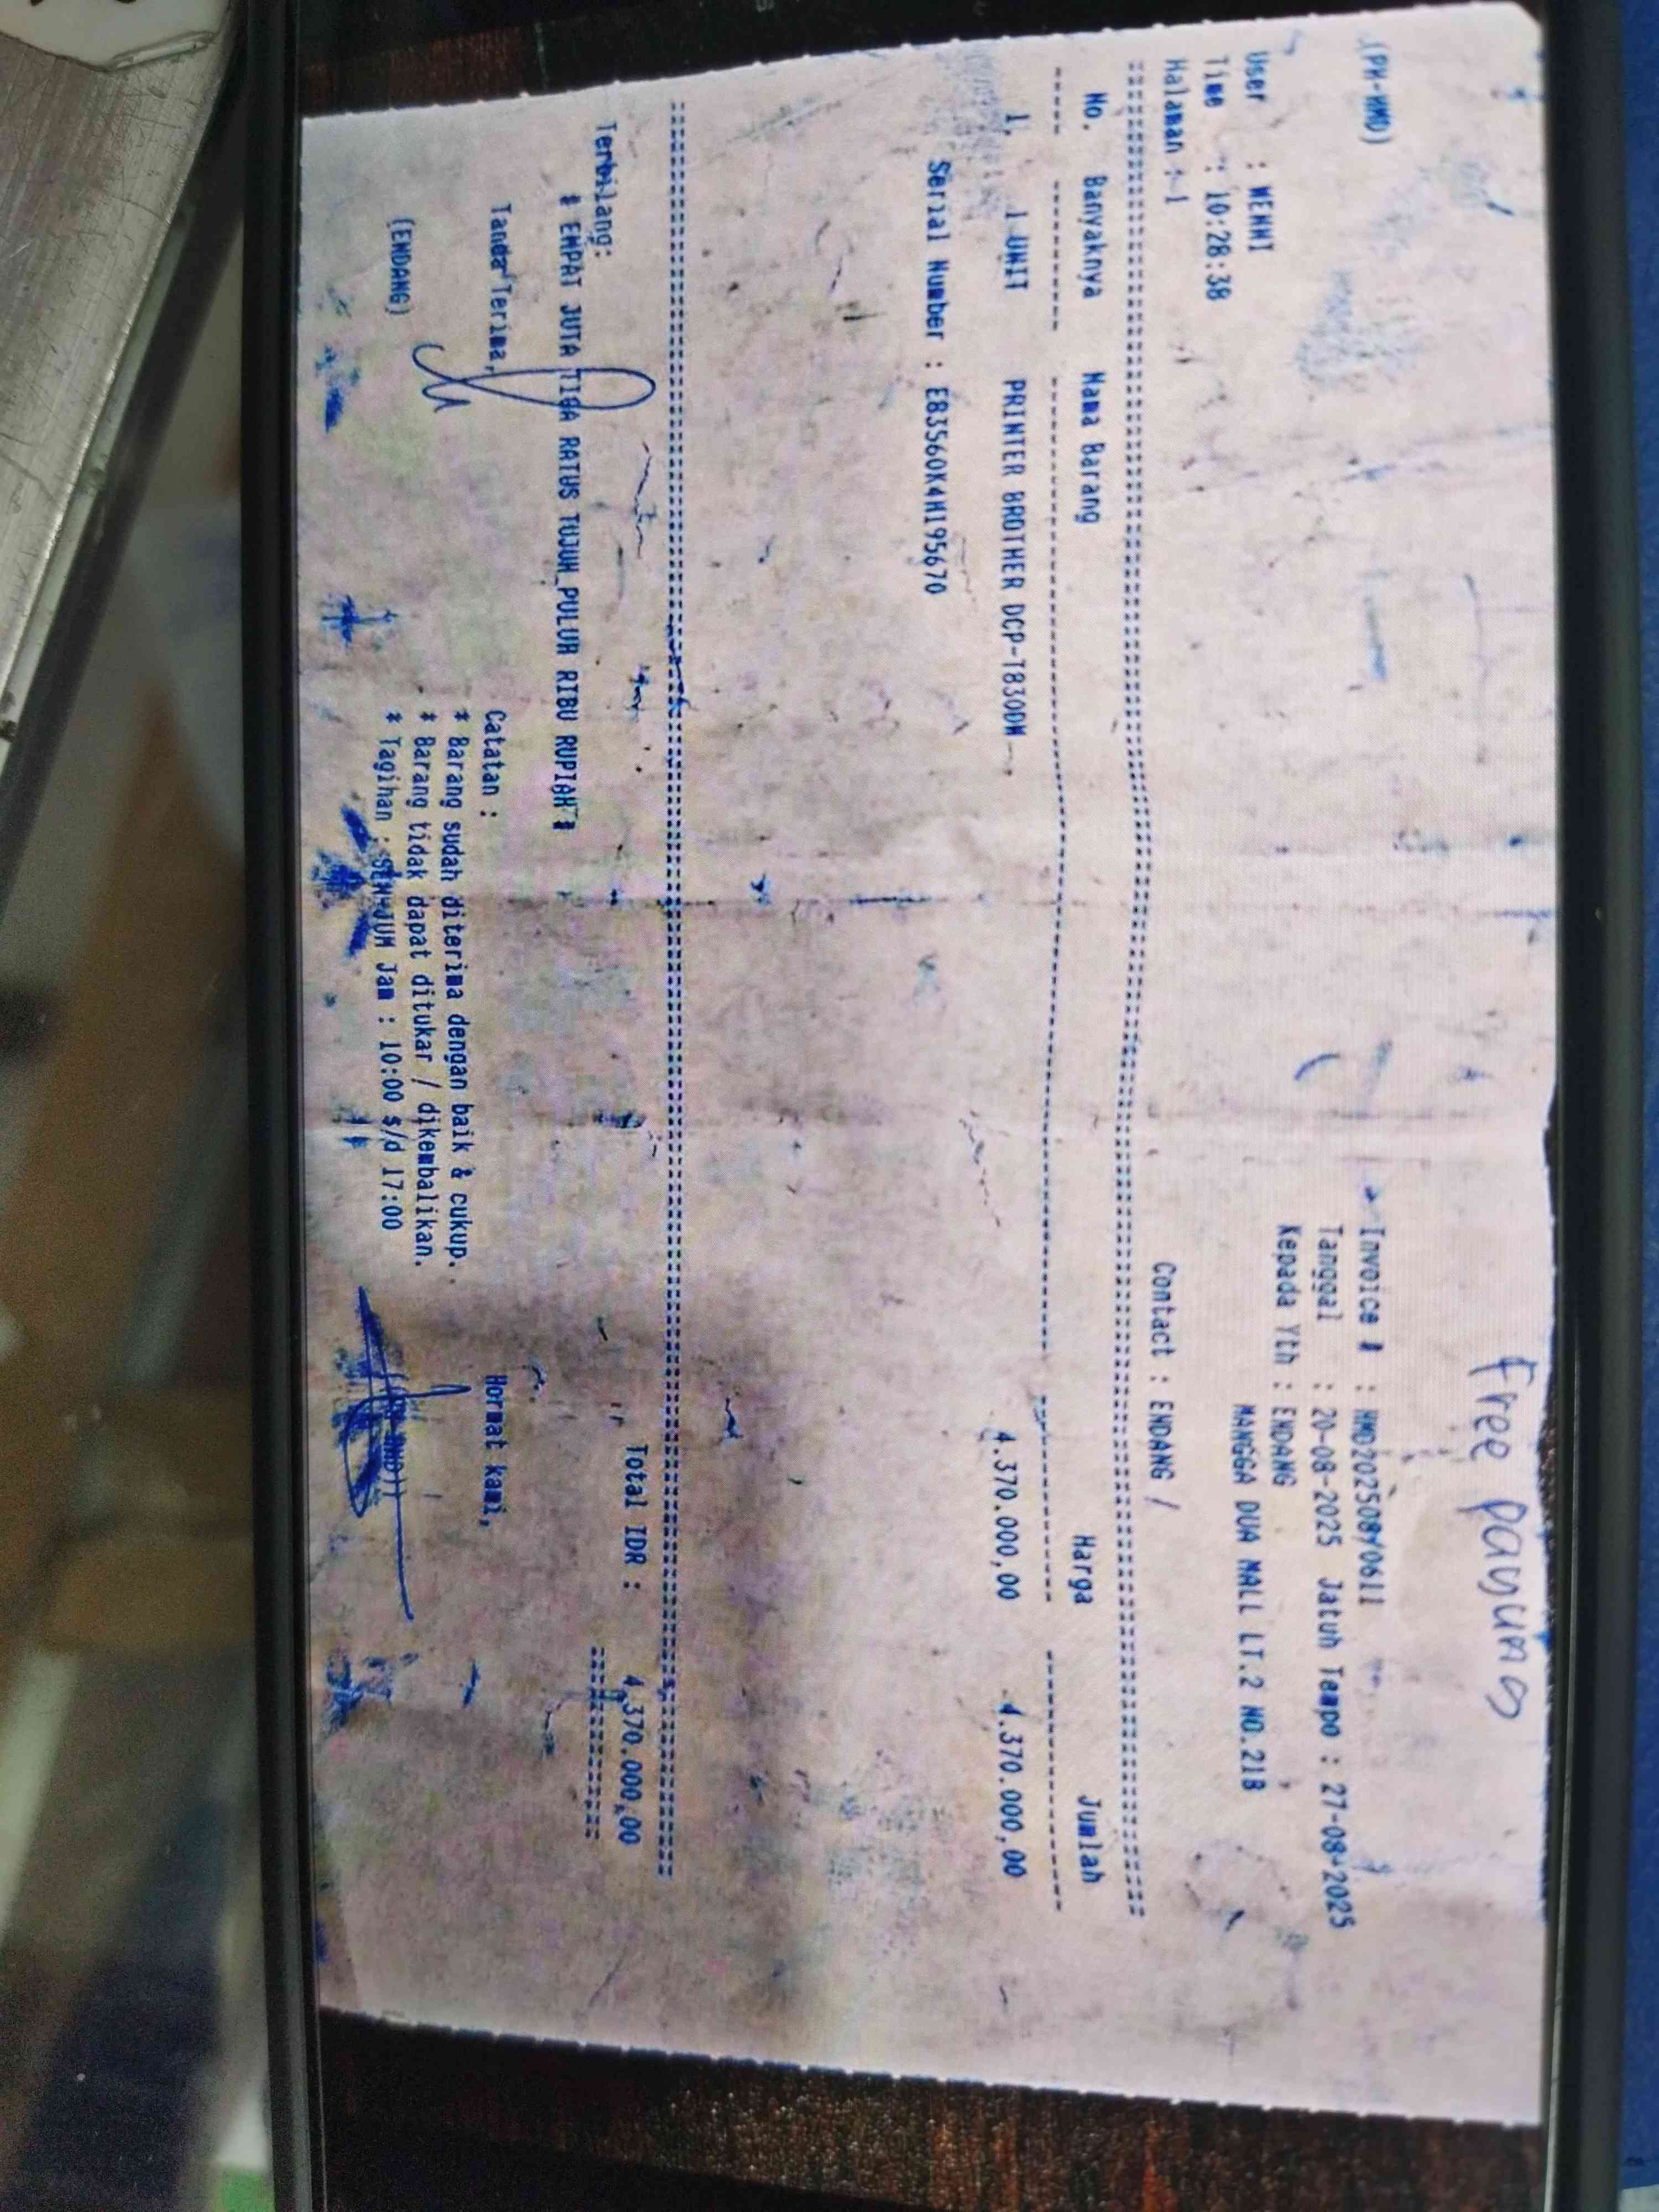 Free payung
(PH-HMD)
Invoice # : HMD202508/0611
Tanggal : 20-08-2025 Jatuh Tempo : 27-08-2025
User : WENNI
Kepada Yth : ENDANG
Time : 10:28:38
MANGGA DUA MALL LT.2 NO.21B
Halaman : 1
Contact : ENDANG /
No. Banyaknya Nama Barang Harga Jumlah
1. 1 UNIT PRINTER BROTHER DCP-T830DW 4.370.000,00 4.370.000,00
Serial Number : E83560K4H195670
Total IDR : 4.370.000,00
Terbilang:
# EMPAT JUTA TIGA RATUS TUJUH PULUH RIBU RUPIAH #
Tanda Terima, Catatan : Hormat kami,
* Barang sudah diterima dengan baik & cukup.
* Barang tidak dapat ditukar / dikembalikan.
(ENDANG) * Tagihan : SEN-JUM Jam : 10:00 S/d 17:00